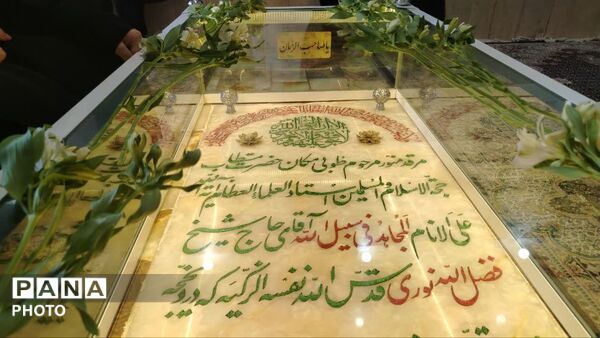 یا صاحب الزمان
مرقد منور مرحوم خلوبی مکان حضرت مستطاب
حجة الاسلام و المسلمین استاد العلماء العظام آیة الله
علی الانام المجاهد فی سبیل الله آقای حاج شیخ
فضل الله نوری قدس الله نفسه الزکیه که در ذیحجه
PANA
PHOTO